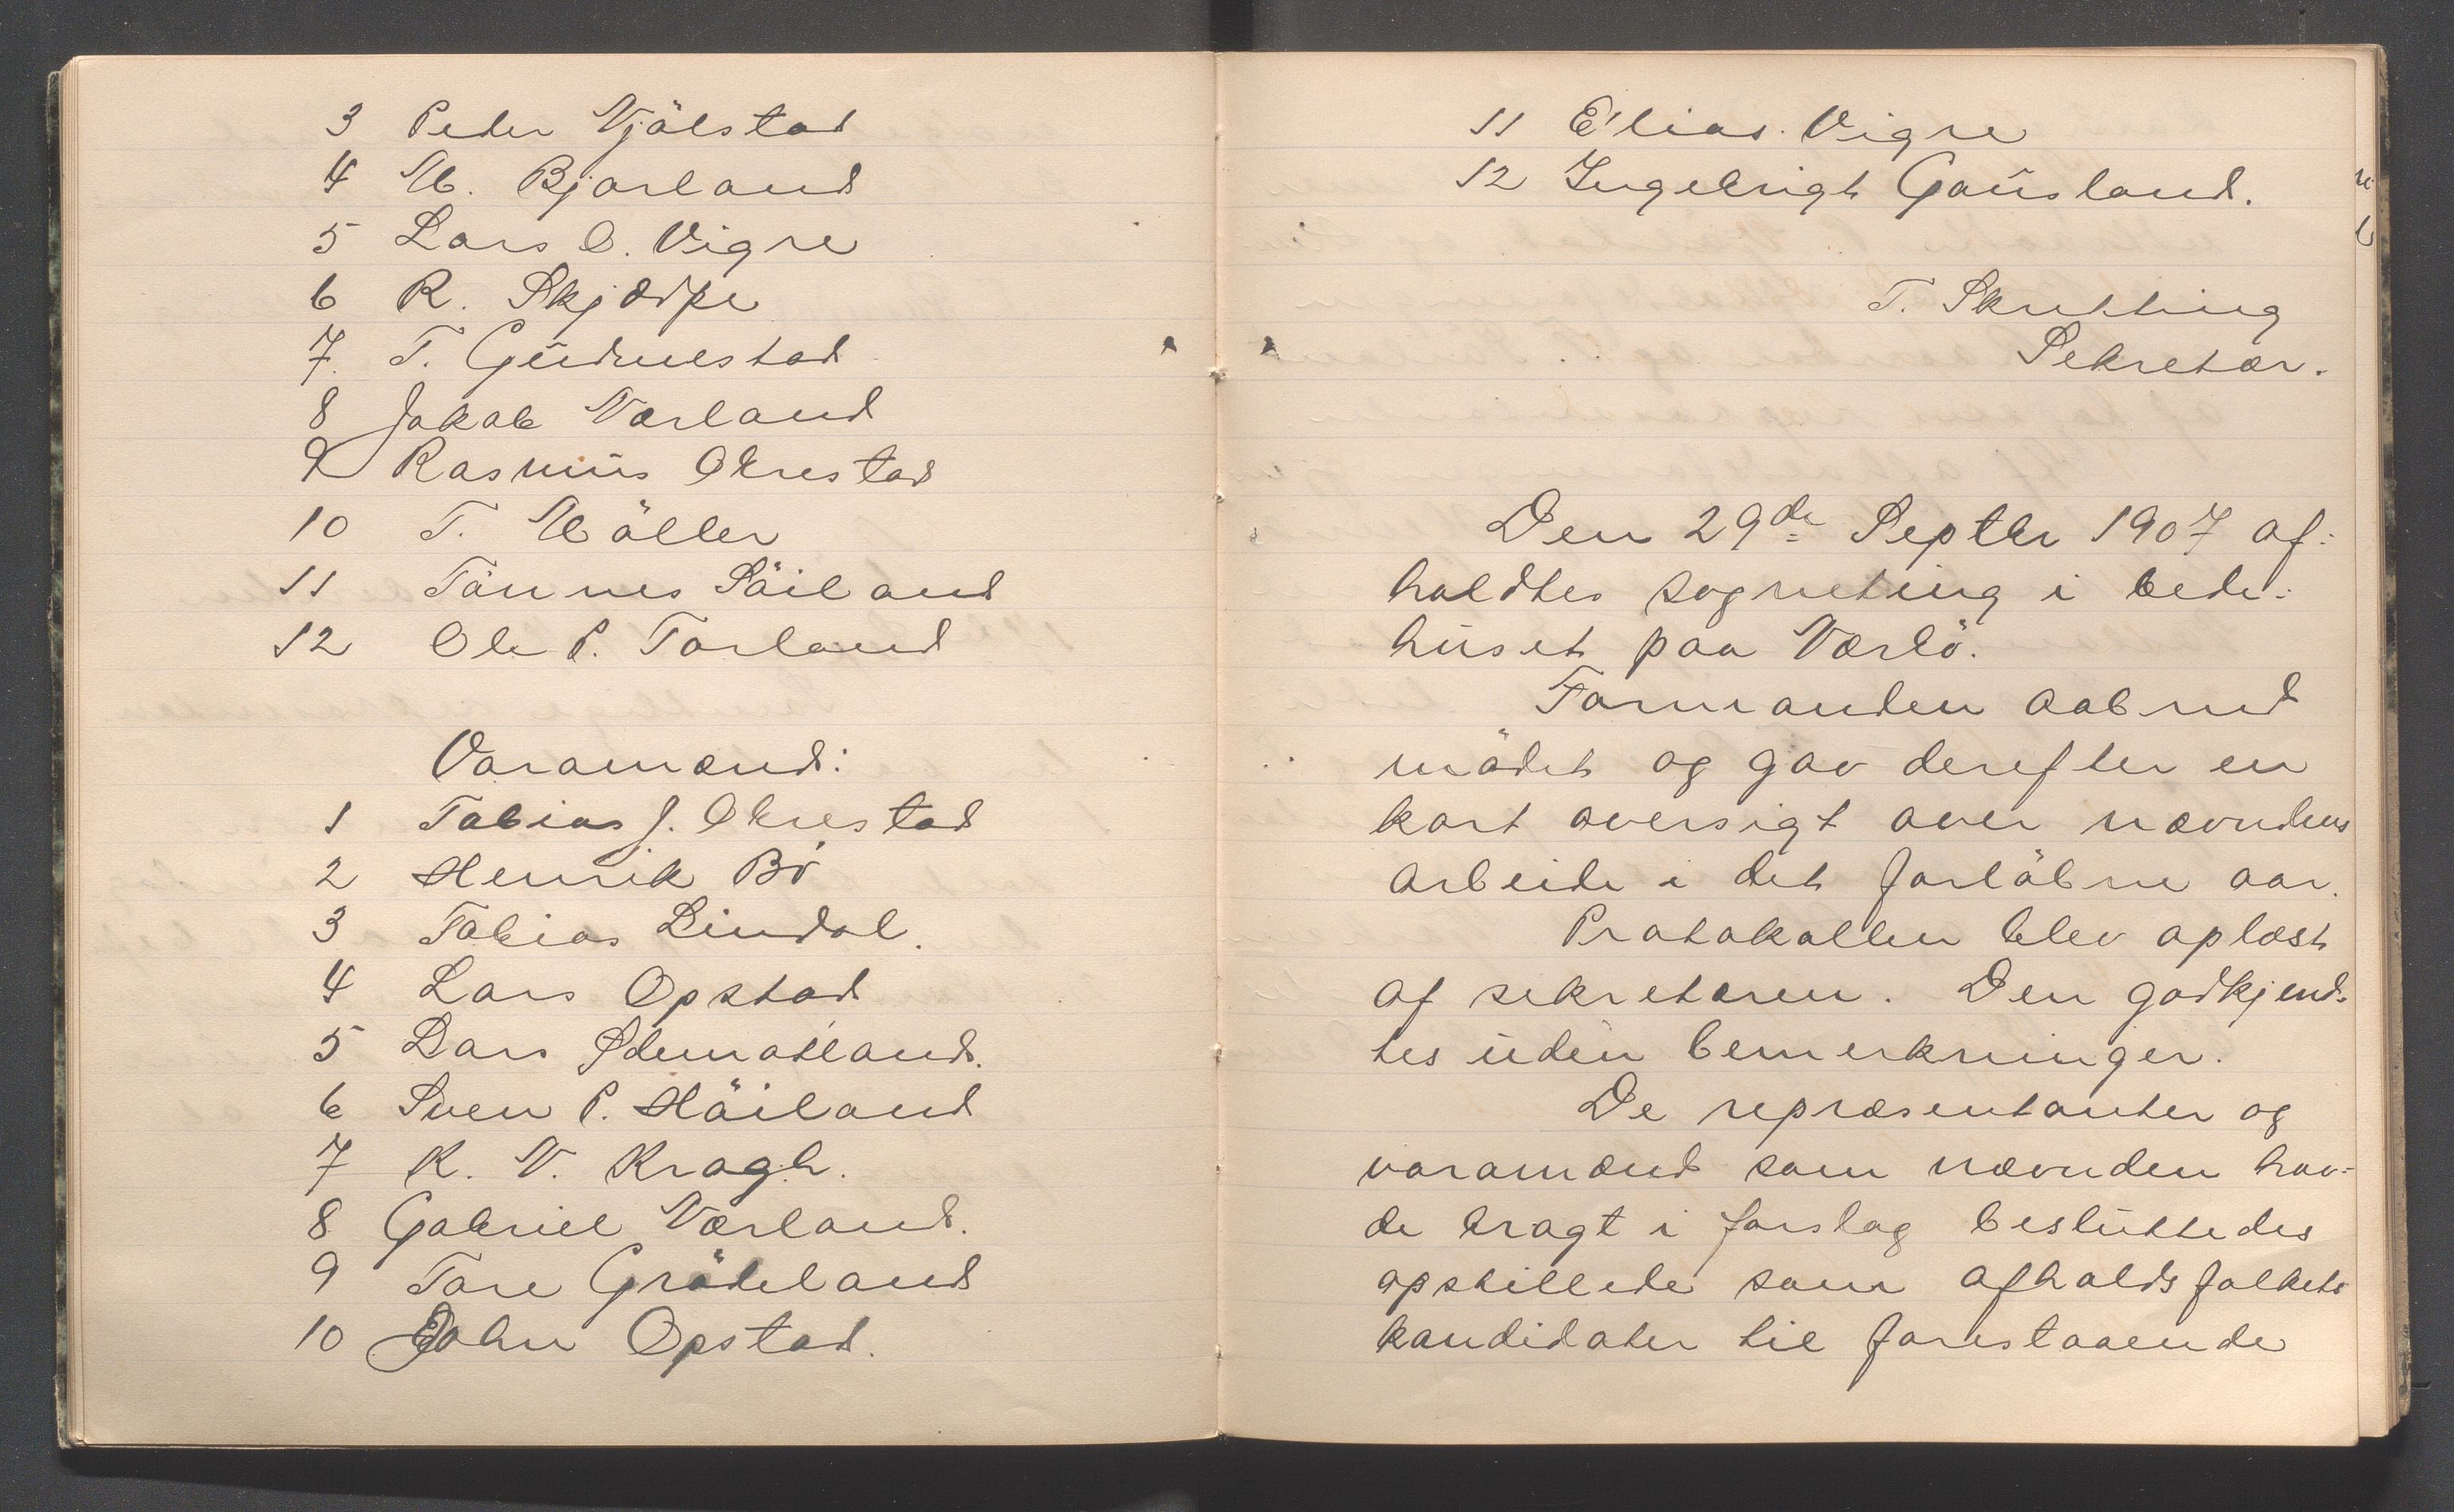 3 Peder Njölstad
4 M. Bjorland
5 Lars O. Vigre
6 R. Skjærpe
7. T. Gudmestad
8 Jakob Nærland
9 Rasmus Obrestad
10 T. Möller
11 Tönnes Söiland
12 Ole P. Torland
Varamænd:
1 Tobias J. Obrestad
2 Henrik Bö
3 Tobias Lindal.
4 Lars Opstad
5 Lars Ødemotland.
6 Sven P. Höiland
7 K. N. Kragh.
8 Gabriel Nærland.
9 Tore Grödeland
10 John Opstad.
11 Elias Vigre
12 Ingebrigt Gausland.
T. Skretting
Sekretær.
Den 29de Septbr 1907 af-
holdtes sogneting i bede-
huset paa Nærbö.
Formanden aabned
mödet og gav derefter en
kort oversigt over nævndens
arbeide i det forlöbne aar.
Protokollen blev oplæst
af sekretæren. Den godkjend-
tes uden bemerkninger.
De repræsentanter og
varamænd som nævnden hav-
de bragt i forslag besluttedes
opstillede som afholdsfolkets
kandidater til forestaaende